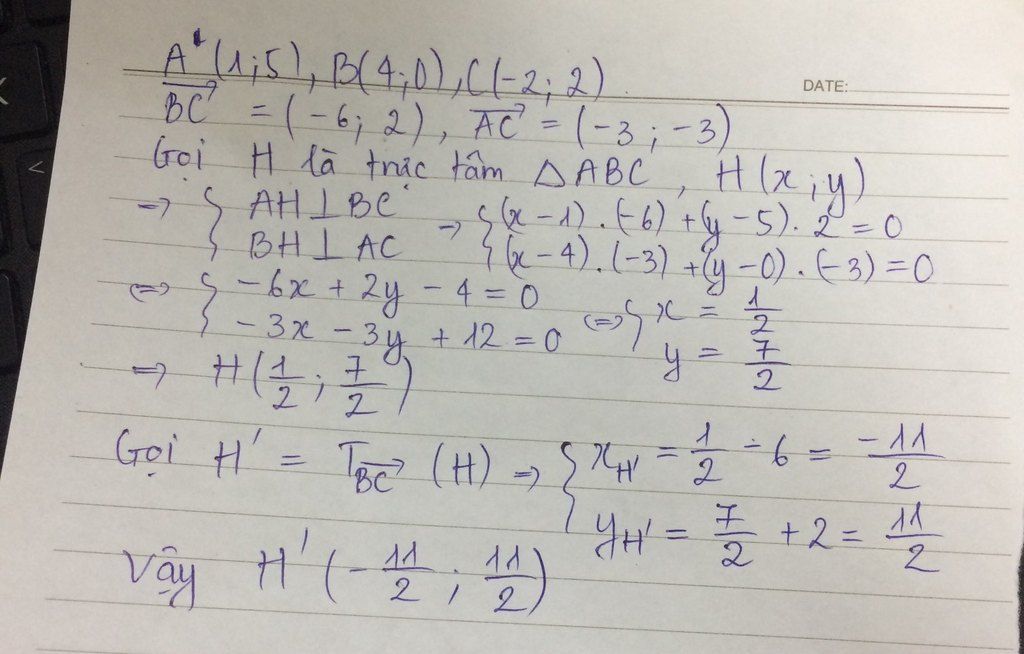 A(1;5), B(4;0), C(-2; 2)
DATE:
$\overrightarrow{BC}$ = (-6; 2), $\overrightarrow{AC}$ = (-3; -3)
Gọi H là trực tâm △ABC, H(x;y)
⇒ { AH⊥BC ⇒ { (x-1).(-6)+(y-5).2=0
BH⊥AC (x-4).(-3)+(y-0).(-3)=0
⇔ { -6x+2y-4=0 ⇔ { x = 1/2
-3x-3y+12=0 y = 7/2
⇒ H(1/2; 7/2)
Gọi H' = T_{\overrightarrow{BC}} (H) ⇒ { x_{H'} = 1/2 - 6 = -11/2
y_{H'} = 7/2 + 2 = 11/2
Vậy H'(-11/2; 11/2)